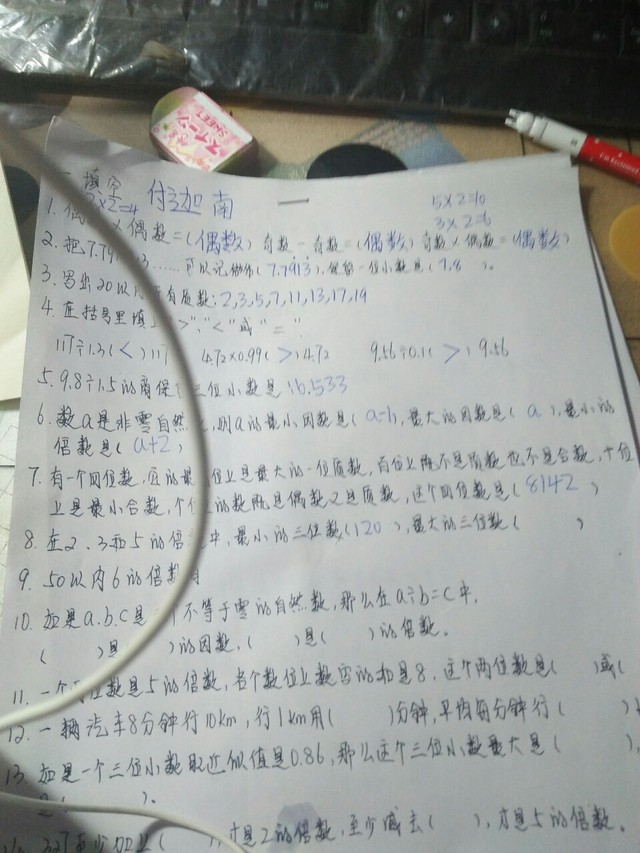 スイーツ
SWEET
一 填空
2×2=4 付迦南
5×2=10
3×2=6
1. 偶 × 偶数=(偶数) 奇数-奇数=(偶数) 奇数×偶数=(偶数)
2. 把7.791 3……可以记作(7.7913),保留一位小数是(7.8)。
3. 写出20以 有质数:2,3,5,7,11,13,17,19
4. 在括号里填 ">"."<"或"="
117÷1.3(<)117 4.72×0.99(>)4.72 9.56÷0.1(>)9.56
5. 9.8÷1.5的商保 三位小数是16.533
6. 数a是非零自然 ,则a的最小因数是( ),最大的因数是(a),最小的
倍数是(a+2)
7. 有一个四位数,它的 位上是最大的一位质数,百位上既不是质数也不是合数,十位
上是最小合数,个 的数既是偶数又是质数,这个四位数是(8142)
8. 在2、3和5的倍 中,最小的三位数(120),最大的三位数( )
9. 50以内6的倍数
10. 如果a.b.c是 个不等于零的自然数,那么在a÷b=c中,
( )是( )的因数,( )是( )的倍数。
11. 一个 位数是5的倍数,各个数位上数字的和是8,这个两位数是( )或(
12. 一辆汽车8分钟行10km,行1km用( )分钟,平均每分钟行( )
13. 如果一个三位小数取近似值是0.86,那么这个三位小数最大是( ),
( )。
至少加上( ),才是2的倍数,至少减去( ),才是5的倍数。